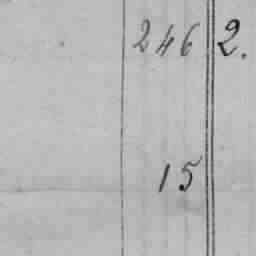 246 2.
15